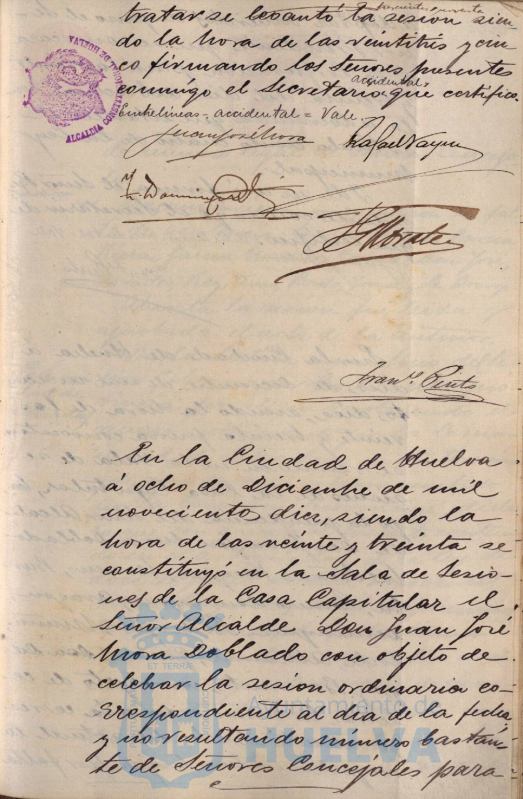 tratar se levantó la sesion sien-
do la hora de las veintitres y cin-
co firmando los Señores presentes
accidental
conmigo el Secretario que certifico.
Entrelineas = accidental = Vale.
Juan José Mora
Rafael
ALCALDIA CONSTITUCIONAL DE HUELVA
Franco. Pinto
En la Ciudad de Huelva
á ocho de Diciembre de mil
novecientos diez, siendo la
hora de las veinte y treinta se
constituyó en la Sala de Sesio-
nes de la Casa Capitular el
Señor Alcalde Don Juan José
Mora Doblado con objeto de
celebrar la sesion ordinaria co-
rrespondiente al dia de la fecha
y no resultando número bastan-
te de Señores Concejales para
ET TERRAE
Ayuntamiento de
HUELVA